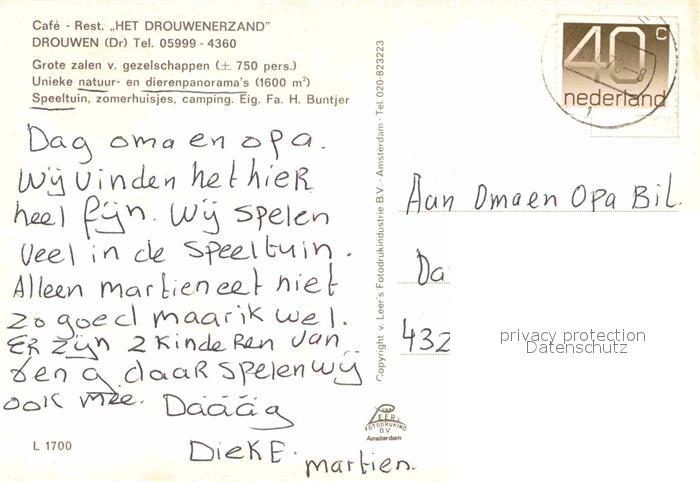 Café - Rest. „HET DROUWENERZAND”
DROUWEN (Dr) Tel. 05999 - 4360
Grote zalen v. gezelschappen (± 750 pers.)
Unieke natuur- en dierenpanorama's (1600 m²)
Speeltuin, zomerhuisjes, camping. Eig. Fa. H. Buntjer
Dag oma en opa.
Wij vinden het hier
heel fijn. Wij spelen
veel in de speeltuin.
Alleen martien eet niet
zo goed maar ik wel.
Er zijn 2 kinderen van
en daar spelen wij
ook mee. Dääääg
Dieke.
martien.
L 1700
Copyright v. Leer's Fotodrukindustrie B.V. - Amsterdam - Tel. 020-823223
VAN
LEER
FOTODRUKIND
B.V
Amsterdam
40 c
nederland
Aan Oma en Opa Bil.
Da
432
privacy protection
Datenschutz